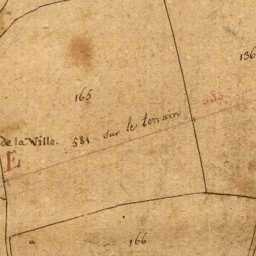 136
165
581 sur le terrain
de la Ville.
E
166